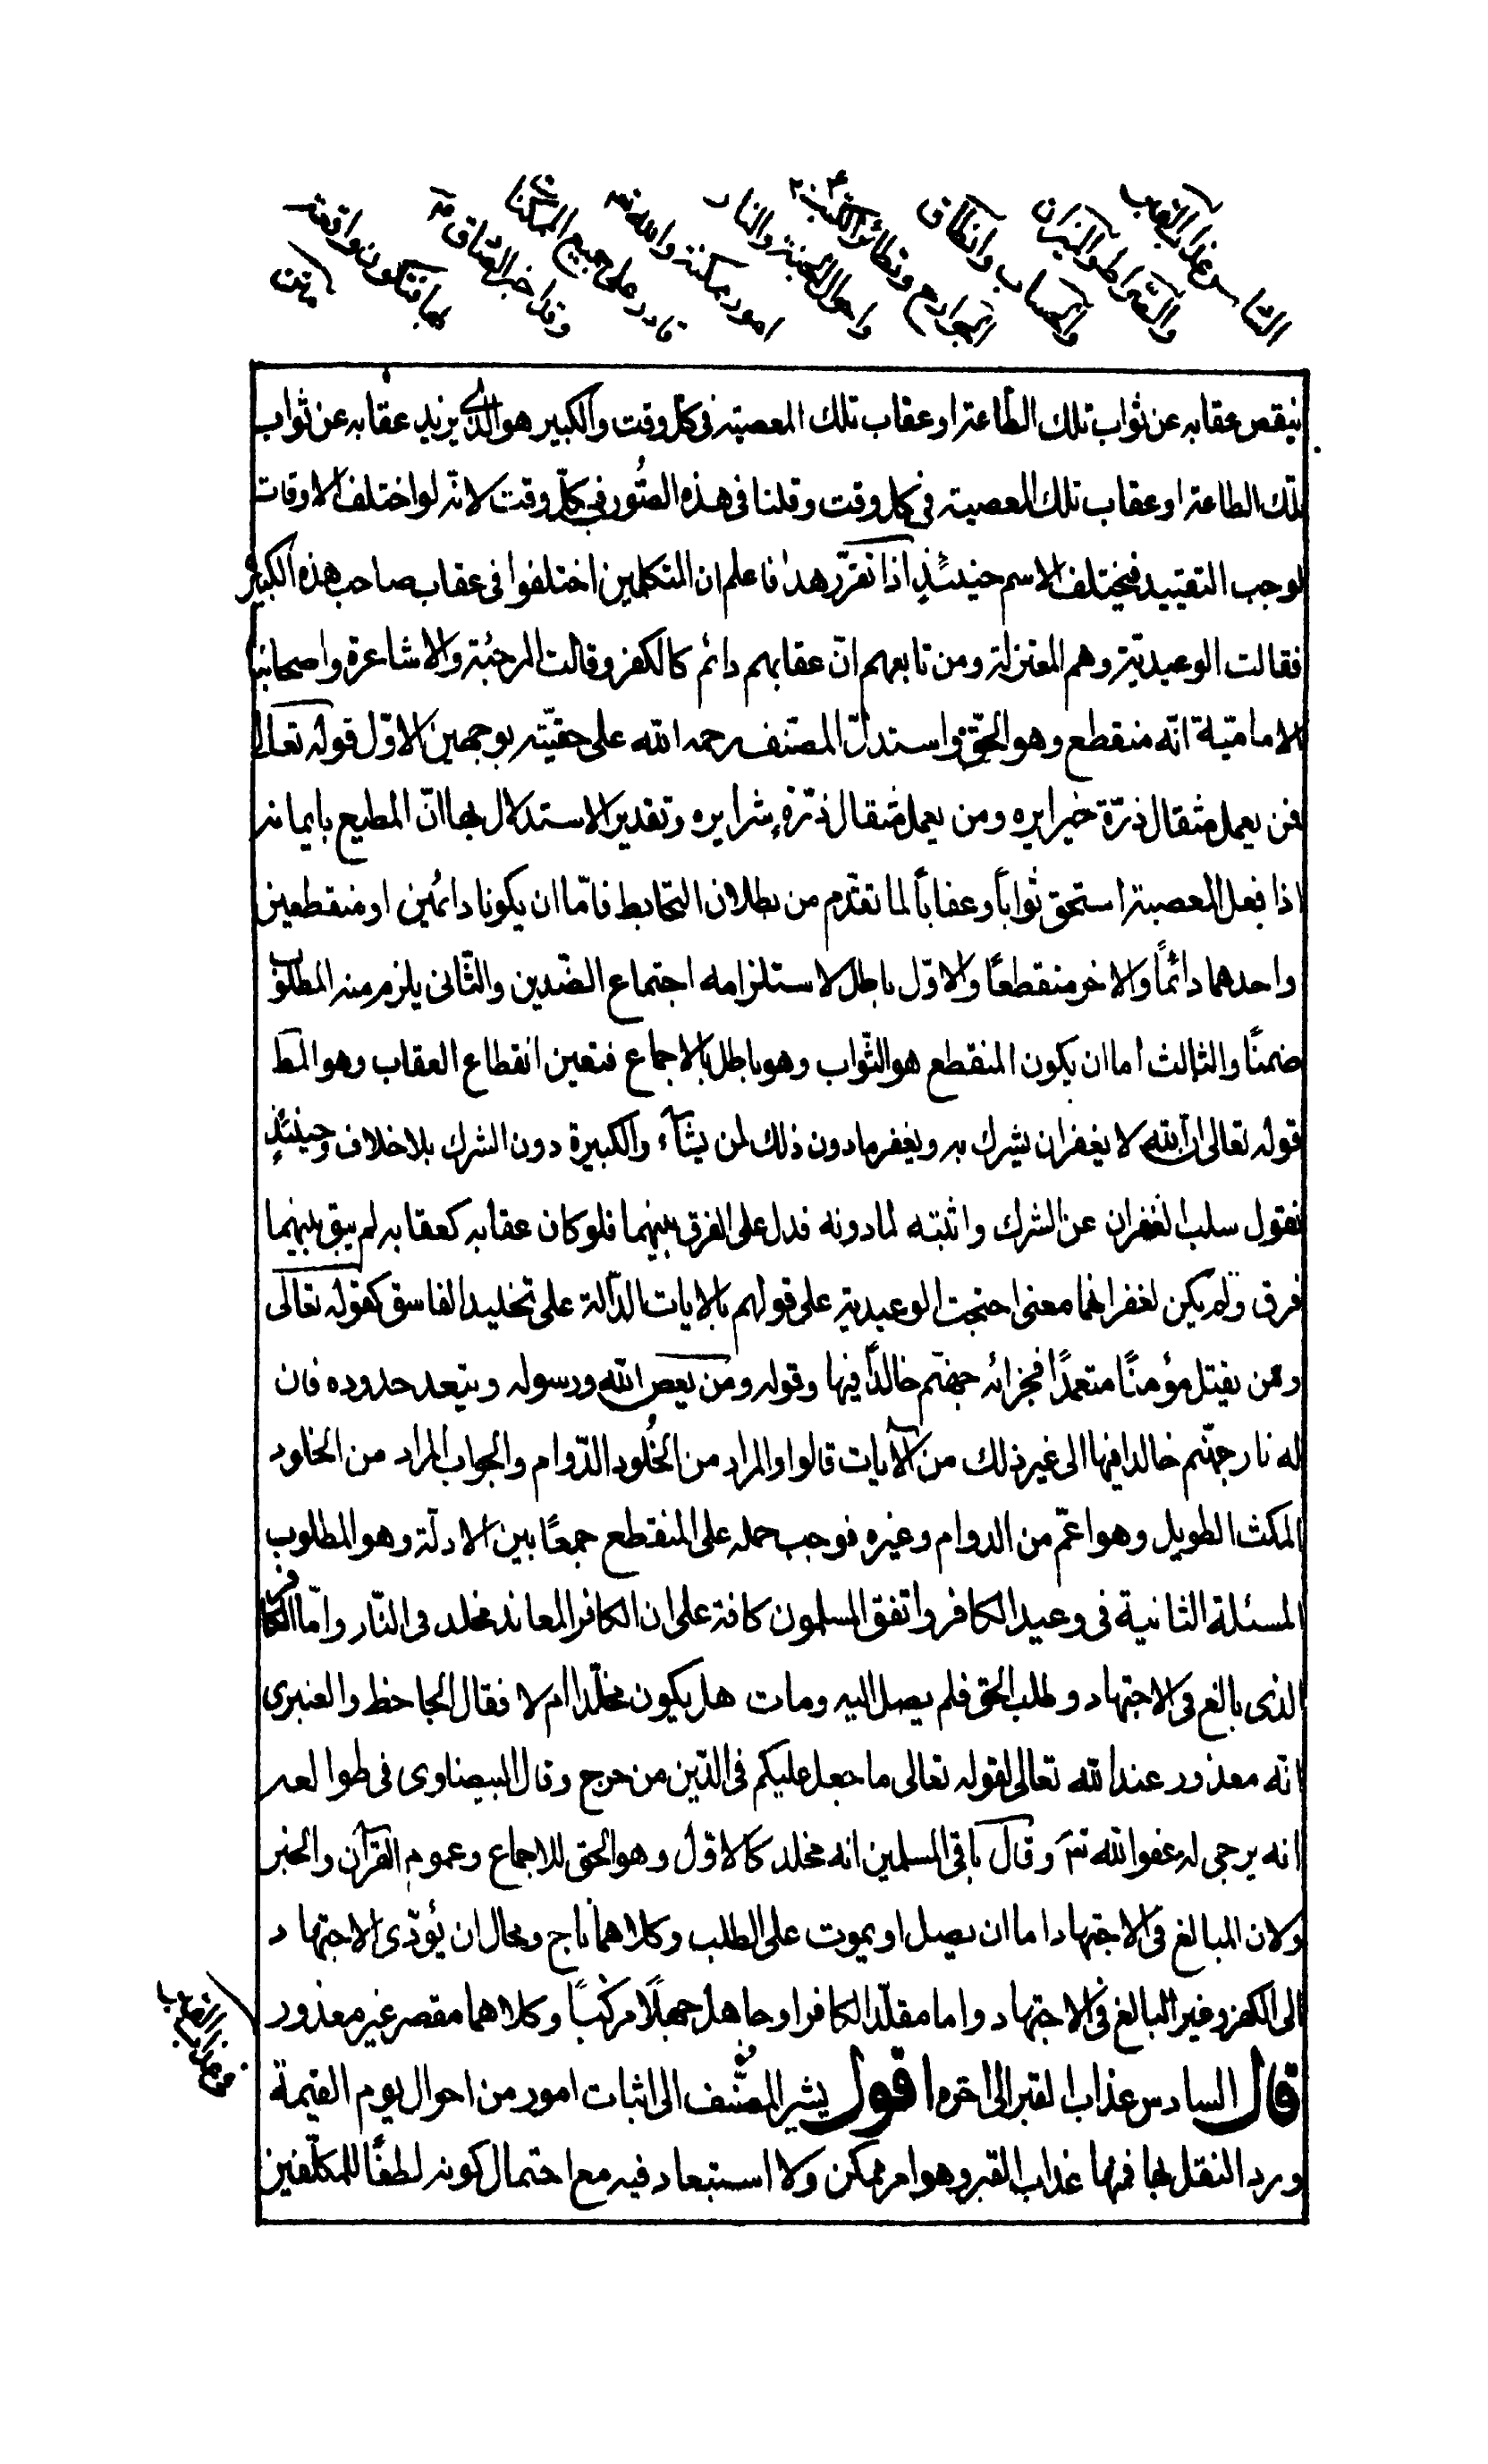 السادس عذاب القبر
والصراط والميزان
والحساب وانطاق
الجوارح وتطائر الكتب
واحوال الجنة والنار
امور ممكنة والله تعه
قادر على جميع الممكنات
وقد اخبر الصادق
بها فتكون واقعة
متن
فينقص عقابه عن ثواب تلك الطاعة او عقاب تلك المعصية في كل وقت والكبير هو الذي يزيد عقابه عن ثواب
تلك الطاعة او عقاب تلك المعصية في كل وقت وقلنا في هذه الصُّور في كلّ وقت لانّه لو اختلف الاوقات
لوجب التقييد فيختلف الاسم حينئذٍ اذا تقرّر هذا فاعلم ان المتكلمين اختلفوا في عقاب صاحب هذه الكبيرة
فقالت الوعيديّة وهم المعتزلة ومن تابعهم انّ عقابهم دائم كالكفر وقالت المرجئة والاشاعرة واصحابنا
الاماميّة انّه منقطع وهو الحقّ واستدلّ المصنف رحمه الله على حقيّته بوجهين الاوّل قوله تعالى
فمن يعمل مثقال ذرّة خيرا يره ومن يعمل مثقال ذرّةٍ شرا يره وتقدير الاستدلال بها انّ المطيع بايمانه
اذا فعل المعصية استحق ثواباً وعقاباً لما تقدّم من بطلان التحابط فامّا ان يكونا دائمين او منقطعين
واحدهما دائماً والاخر منقطعاً والاوّل باطل لاستلزامه اجتماع الضّدين والثّانى يلزم منه المطلوب
ضمنًا والثالث اما ان يكون المنقطع هو الثّواب وهو باطل بالاجماع فتعين انقطاع العقاب وهو المط
قوله تعالى ان الله لا يغفر ان يشرك به ويغفر ما دون ذلك لمن يشآء والكبيرة دون الشرك بلا خلاف وحينئذٍ
نقول سلب الغفران عن الشرك واثبته لما دونه فدل على الفرق بينهما فلو كان عقابه كعقابه لم يبق بينهما
فرق ولم يكن لغفرانهما معنى احتجت الوعيدية على قولهم بالايات الدّالة على تخليد الفاسق كقوله تعالى
ومن يقتل مؤمنًا متعمدًا فجزائه جهنّم خالدًا فيها وقوله ومن يعص الله ورسوله ويتعد حدوده فان
له نار جهنّم خالدا فيها الى غير ذلك من الآيات قالوا والمراد من الخُلود الدّوام والجواب المراد من الخلود
المكث الطويل وهو اعمّ من الدوام وغيره فوجب حمله على المنقطع جمعًا بين الادلّة وهو المطلوب
المسئلة الثانية في وعيد الكافر واتفق المسلمون كافة على ان الكافر المعاند مخلد فى النّار وامّا الكافر
الذى بالغ فى الاجتهاد وطلب الحق فلم يصل اليه ومات هل يكون مخلّدا ام لا فقال الجاحظ والعنبرى
انه معذور عند الله تعالى لقوله تعالى ما جعل عليكم فى الدّين من حرج وقال البيضاوى فى طوالعه
انه يرجى له عفو الله تعَ وقال باقى المسلمين انه مخلد كالاوّل وهو الحق للاجماع وعموم القرآن والخبر
ولان المبالغ فى الاجتهاد اما ان يصل او يموت على الطلب وكلاهما ناج ومحال ان يُؤدّى الاجتهاد
الى الكفر وغير البالغ فى الاجتهاد واما مقلّد الكافر او جاهل جهلًا مركبًا وكلاهما مقصر غير معذور
قال السادس عذاب القبر الى اخره اقول يشير المصنّف الى اثبات امور من احوال يوم القيمة
ورد النقل بها فمنها عذاب القبر وهو امر ممكن ولا استبعاد فيه مع احتمال كونه لطفًا للمكلّفين